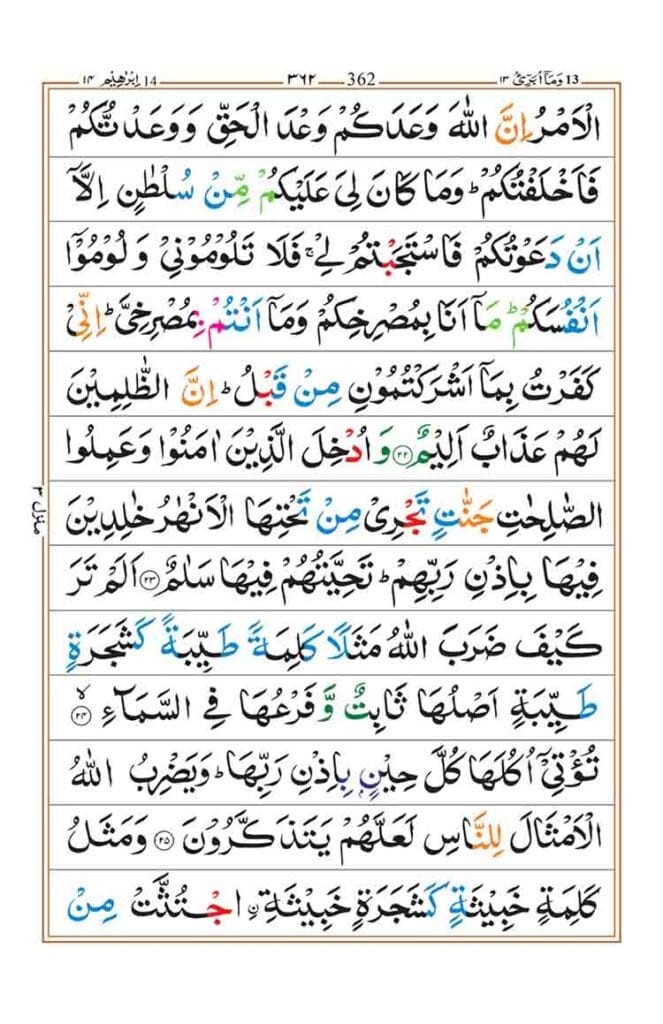 ابرٰهيم 14 ١٤ ٣٦٢ 362 وَمَآ اُبَرِّئُ 13 ١٣
الْاَمْرُ اِنَّ اللّٰهَ وَعَدَكُمْ وَعْدَ الْحَقِّ وَوَعَدْتُّكُمْ
فَاَخْلَفْتُكُمْ ؕ وَمَا كَانَ لِيَ عَلَيْكُمْ مِّنْ سُلْطٰنٍ اِلَّاۤ
اَنْ دَعَوْتُكُمْ فَاسْتَجَبْتُمْ لِيْ ۚ فَلَا تَلُوْمُوْنِيْ وَلُوْمُوْۤا
اَنْفُسَكُمْ ؕ مَاۤ اَنَا بِمُصْرِخِكُمْ وَمَاۤ اَنْتُمْ بِمُصْرِخِيَّ ؕ اِنِّيْ
كَفَرْتُ بِمَاۤ اَشْرَكْتُمُوْنِ مِنْ قَبْلُ ؕ اِنَّ الظّٰلِمِيْنَ
لَهُمْ عَذَابٌ اَلِيْمٌ ﴿٢٢﴾ وَاُدْخِلَ الَّذِيْنَ اٰمَنُوْا وَعَمِلُوا
الصّٰلِحٰتِ جَنّٰتٍ تَجْرِيْ مِنْ تَحْتِهَا الْاَنْهٰرُ خٰلِدِيْنَ
فِيْهَا بِاِذْنِ رَبِّهِمْ ؕ تَحِيَّتُهُمْ فِيْهَا سَلٰمٌ ﴿٢٣﴾ اَلَمْ تَرَ
كَيْفَ ضَرَبَ اللّٰهُ مَثَلًا كَلِمَةً طَيِّبَةً كَشَجَرَةٍ
طَيِّبَةٍ اَصْلُهَا ثَابِتٌ وَّفَرْعُهَا فِي السَّمَآءِ ۙ﴿٢٤﴾
تُؤْتِيْۤ اُكُلَهَا كُلَّ حِيْنٍۭ بِاِذْنِ رَبِّهَا ؕ وَيَضْرِبُ اللّٰهُ
الْاَمْثَالَ لِلنَّاسِ لَعَلَّهُمْ يَتَذَكَّرُوْنَ ﴿٢٥﴾ وَمَثَلُ
كَلِمَةٍ خَبِيْثَةٍ كَشَجَرَةٍ خَبِيْثَةِ ِۨاجْتُثَّتْ مِنْ
منزل ٣